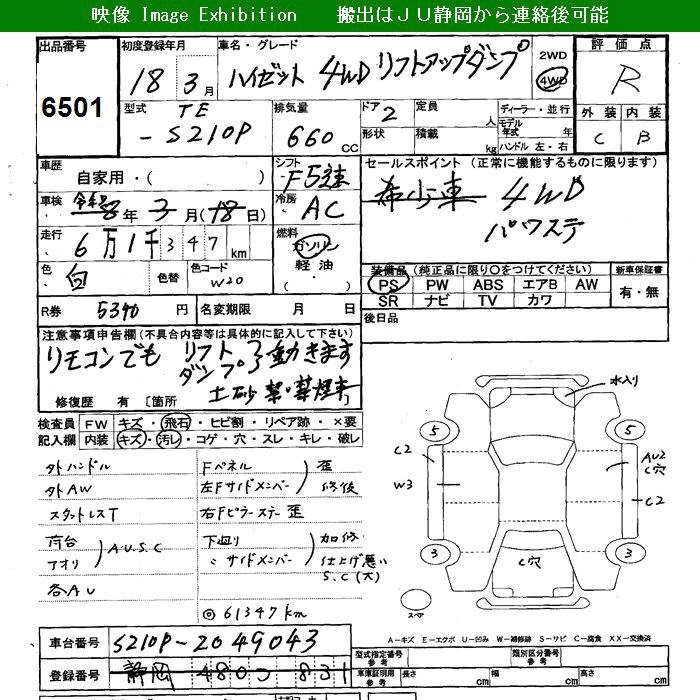 映像 Image Exhibition　　搬出はＪＵ静岡から連絡後可能
出品番号
6501
初度登録年月
18 3月
車名・グレード
ハイゼット 4WD リフトアップダンプ
2WD
4WD
評価点
R
外装 内装
C B
型式
TE
-S210P
排気量
660cc
ドア 2
形状
定員 人
積載 kg
ディーラー・並行
モデル年式 年
ハンドル 左・右
車歴
自家用・( )
シフト
F5速
車検
令和8年3月(18日)
冷房
AC
走行
6万1千347km
燃料
ガソリン
軽油
( ・ )
色
白
色替
色コード
W20
R券 5340円
名変期限 月 日
セールスポイント (正常に機能するものに限ります)
希少車 4WD
パワステ
装備品 (純正品に限り○をつけてください)
PS PW ABS エアB AW
SR ナビ TV カワ
新車保証書
有・無
後日品
注意事項申告欄(不具合内容等は具体的に記入して下さい)
リモコンでも リフト
ダンプ 動きます
土砂禁・禁煙車
修復歴 有〔箇所
検査員記入欄
FW キズ・飛石・ヒビ割・リペア跡・×要
内装 キズ・汚レ・コゲ・穴・スレ・キレ・破レ
外ハンドル
外AW
スタットレスT
荷台
アオリ
A・U・S・C
各AU
Fパネル
左Fサイドメンバー
歪
修復
右Fピラーステー 歪
下廻り
〃 サイドメンバー
加修
仕上げ悪い
S.C(大)
◎61347km
水入り
5 5
C2
W3
AU2
C穴
C2
3 3
C穴
スペア
A－キズ E－エクボ U－凹み W－補修跡 S－サビ C－腐食 XX－交換済
車台番号 S210P-2049043
登録番号 静岡 480 う 831
型式指定番号 参考
類別区分番号 参考
車庫証明用 参考
長さ cm
幅 cm
高さ cm